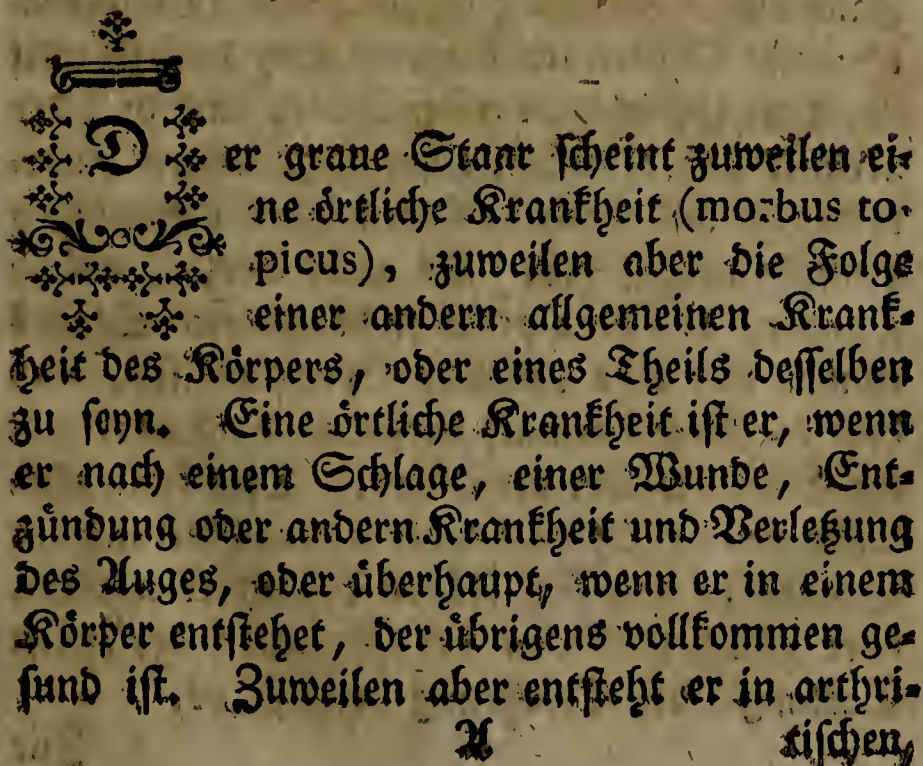 Der graue Staar scheint zuweilen ei-
ne örtliche Krankheit (morbus to-
picus), zuweilen aber die Folge
einer andern allgemeinen Krank-
heit des Körpers, oder eines Theils desselben
zu seyn. Eine örtliche Krankheit ist er, wenn
er nach einem Schlage, einer Wunde, Ent-
zündung oder andern Krankheit und Verletzung
des Auges, oder überhaupt, wenn er in einem
Körper entstehet, der übrigens vollkommen ge-
sund ist. Zuweilen aber entsteht er in arthri-
A tischen,